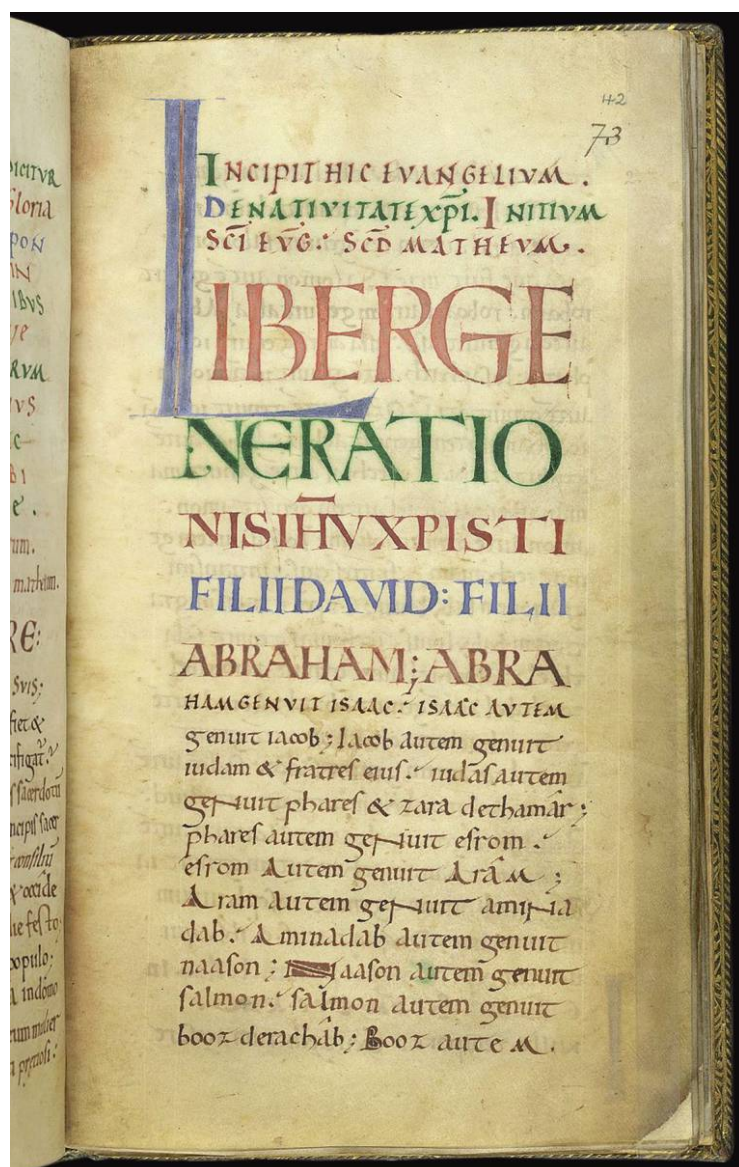 42
73
INCIPIT HIC EVANGELIVM.
DENATIVITATE XP̅I. INITIVM
SC̅I EVG̅: SC̅D MATHEVM.
LIBERGE
NERATIO
NISIH̅VXPISTI
FILIIDAVID: FILII
ABRAHAM; ABRA
HAMGENVIT ISAAC: ISAAC AVTEM
genuit iacob; Iacob autem genuit
iudam & fratres eius. iudas autem
genuit phares & zara dethamar;
phares autem genuit esrom.
esrom Autem genuit AraM;
Aram autem genuit amina
dab. Aminadab autem genuit
naason; aason autem genuit
salmon. salmon autem genuit
booz derachab; Booz auteM.
DICITVR
Gloria
PON
IN
IBVS
RVM
VS
BI
e.
tum.
RE:
SVIS;
fiet &
cifigat.
& occide
die festo
populo;
indomo